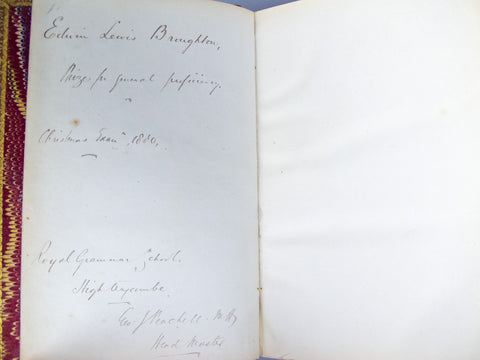 Edwin Lewis Broughton,
Prize for general proficiency.
Christmas Exam^n, 1880,
Royal Grammar School.
High Wycombe.
Geo. J Peachell. M.A
Head Master